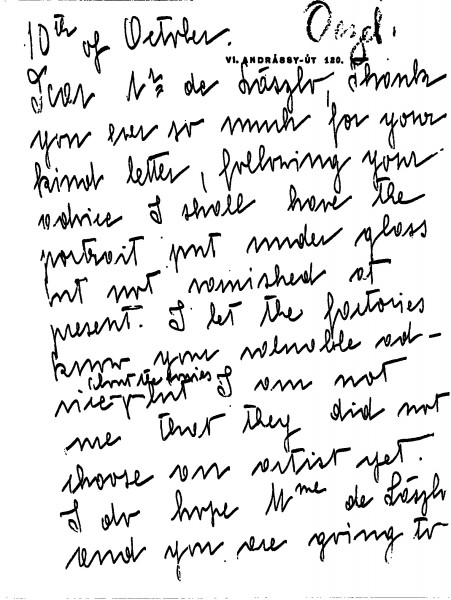 10th of October.
VI. ANDRÁSSY-ÚT 120.
Dear Mr de László, Thank
you ever so much for your
kind letter, following your
advice I shall have the
portrait put under glass
but not varnished at
present. I let the factories
know your valuable ad-
about the
vice - but I am not
me that they did not
choose an artist yet.
I do hope Mme de László
and you are going to